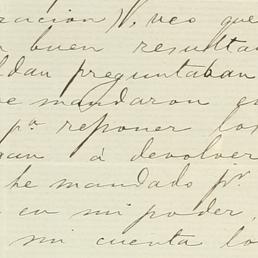 zacion) V, veo que
n buen resultad
ldan preguntaban
e mandaron en
pª reponer los
gan á devolver
he mandado pr.
en mi poder,
mi cuenta lo